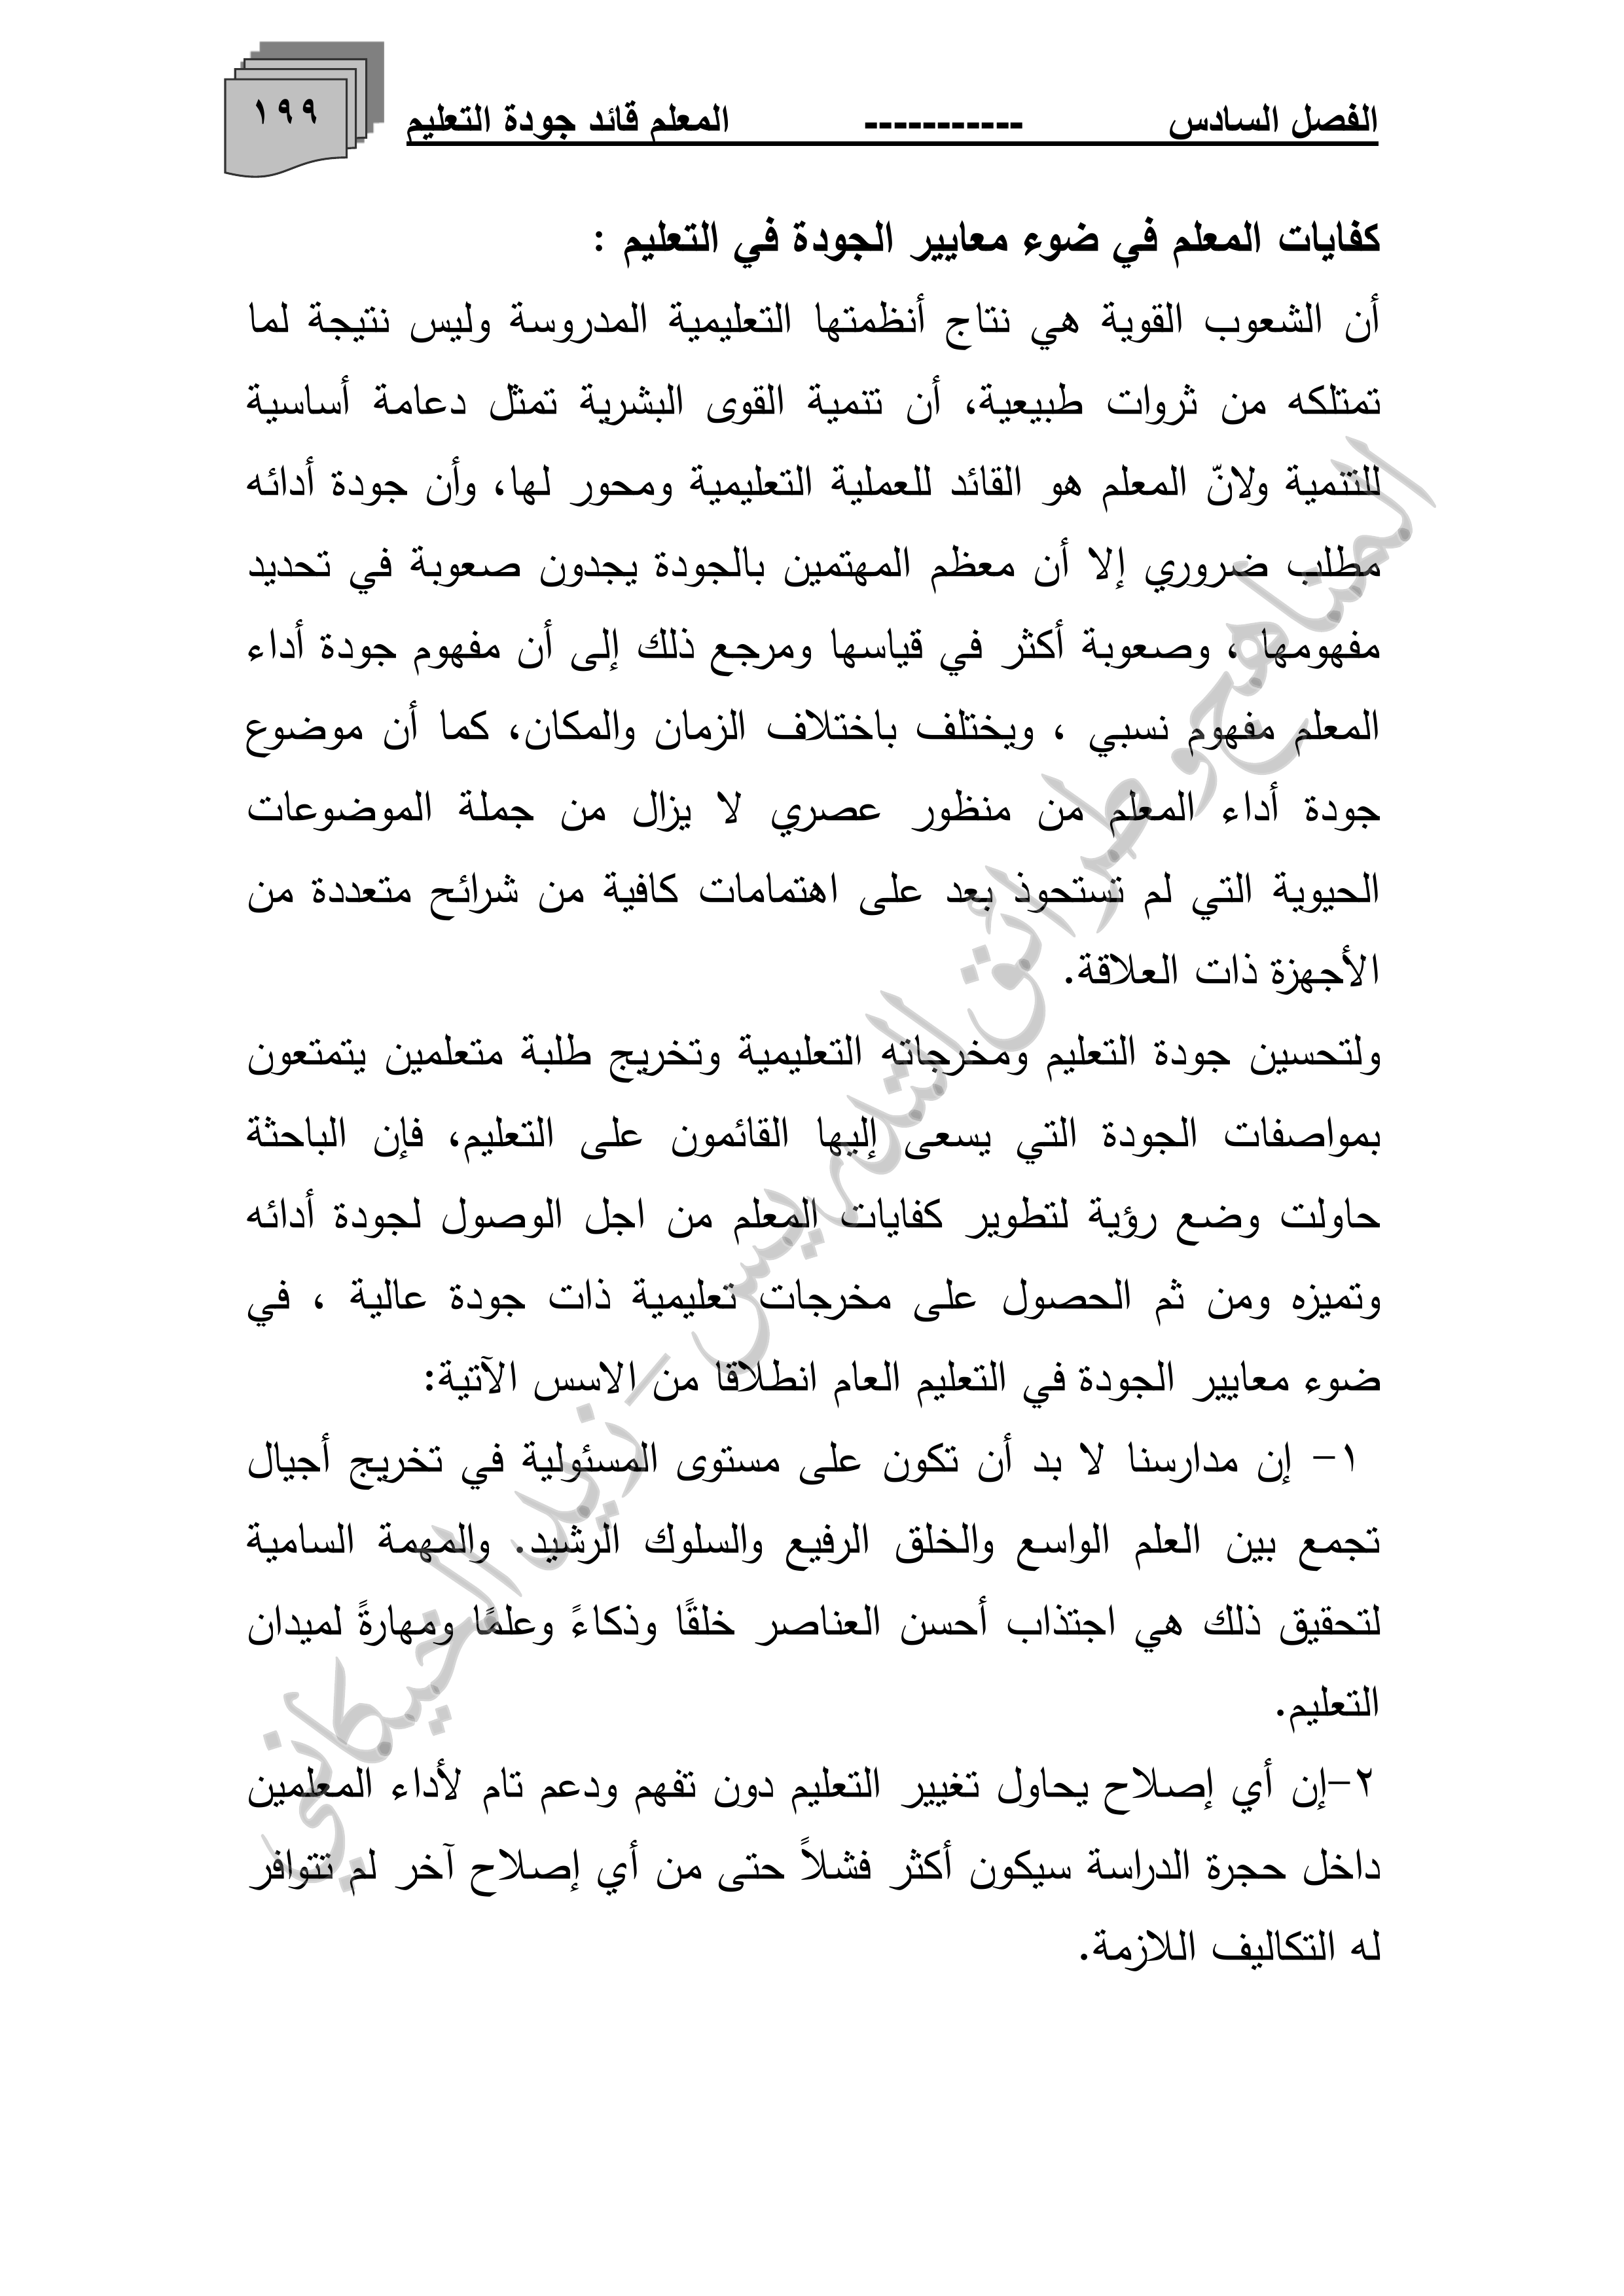 الفصل السادس ----------- المعلم قائد جودة التعليم
١٩٩
كفايات المعلم في ضوء معايير الجودة في التعليم :
أن الشعوب القوية هي نتاج أنظمتها التعليمية المدروسة وليس نتيجة لما
تمتلكه من ثروات طبيعية، أن تنمية القوى البشرية تمثل دعامة أساسية
للتنمية ولانّ المعلم هو القائد للعملية التعليمية ومحور لها، وأن جودة أدائه
مطلب ضروري إلا أن معظم المهتمين بالجودة يجدون صعوبة في تحديد
مفهومها ، وصعوبة أكثر في قياسها ومرجع ذلك إلى أن مفهوم جودة أداء
المعلم مفهوم نسبي ، ويختلف باختلاف الزمان والمكان، كما أن موضوع
جودة أداء المعلم من منظور عصري لا يزال من جملة الموضوعات
الحيوية التي لم تستحوذ بعد على اهتمامات كافية من شرائح متعددة من
الأجهزة ذات العلاقة.
ولتحسين جودة التعليم ومخرجاته التعليمية وتخريج طلبة متعلمين يتمتعون
بمواصفات الجودة التي يسعى إليها القائمون على التعليم، فإن الباحثة
حاولت وضع رؤية لتطوير كفايات المعلم من اجل الوصول لجودة أدائه
وتميزه ومن ثم الحصول على مخرجات تعليمية ذات جودة عالية ، في
ضوء معايير الجودة في التعليم العام انطلاقا من الاسس الآتية:
١- إن مدارسنا لا بد أن تكون على مستوى المسئولية في تخريج أجيال
تجمع بين العلم الواسع والخلق الرفيع والسلوك الرشيد. والمهمة السامية
لتحقيق ذلك هي اجتذاب أحسن العناصر خلقًا وذكاءً وعلمًا ومهارةً لميدان
التعليم.
٢-إن أي إصلاح يحاول تغيير التعليم دون تفهم ودعم تام لأداء المعلمين
داخل حجرة الدراسة سيكون أكثر فشلاً حتى من أي إصلاح آخر لم تتوافر
له التكاليف اللازمة.
المناهج وطرائق التدريس - زيد الخيكاني